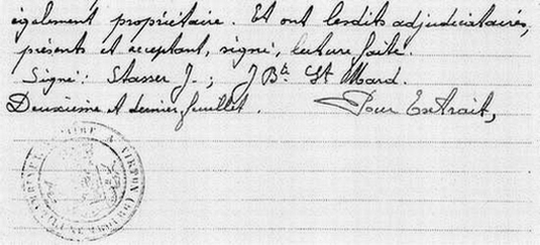 également propriétaire. Et ont lesdits adjudicataires,
présents et acceptant, signé, lecture faite.
Signé: Stasser J. ; J Bte St Mard.
Deuxième et dernier feuillet. Pour Extrait,
A VIRTON